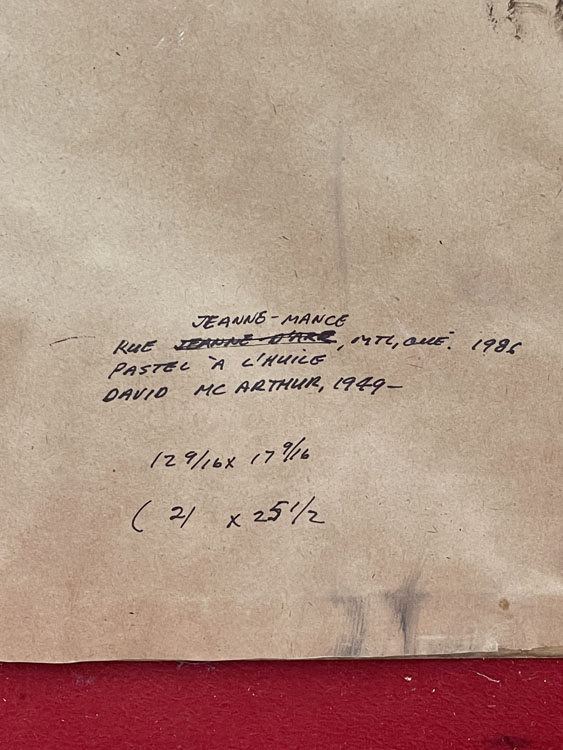 JEANNE-MANCE
RUE JEANNE-D'ARC, MTL, QUÉ. 1986
PASTEL À L'HUILE
DAVID MC ARTHUR, 1949-
12 9/16 x 17 9/16
( 21 x 25 1/2